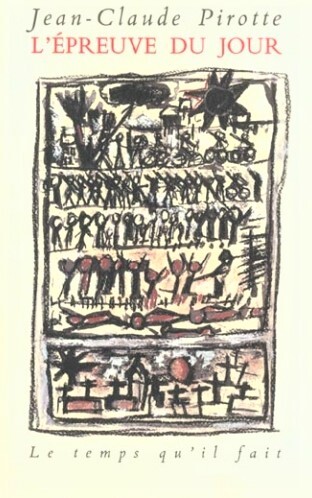 Jean-Claude Pirotte
L'ÉPREUVE DU JOUR
Le temps qu'il fait